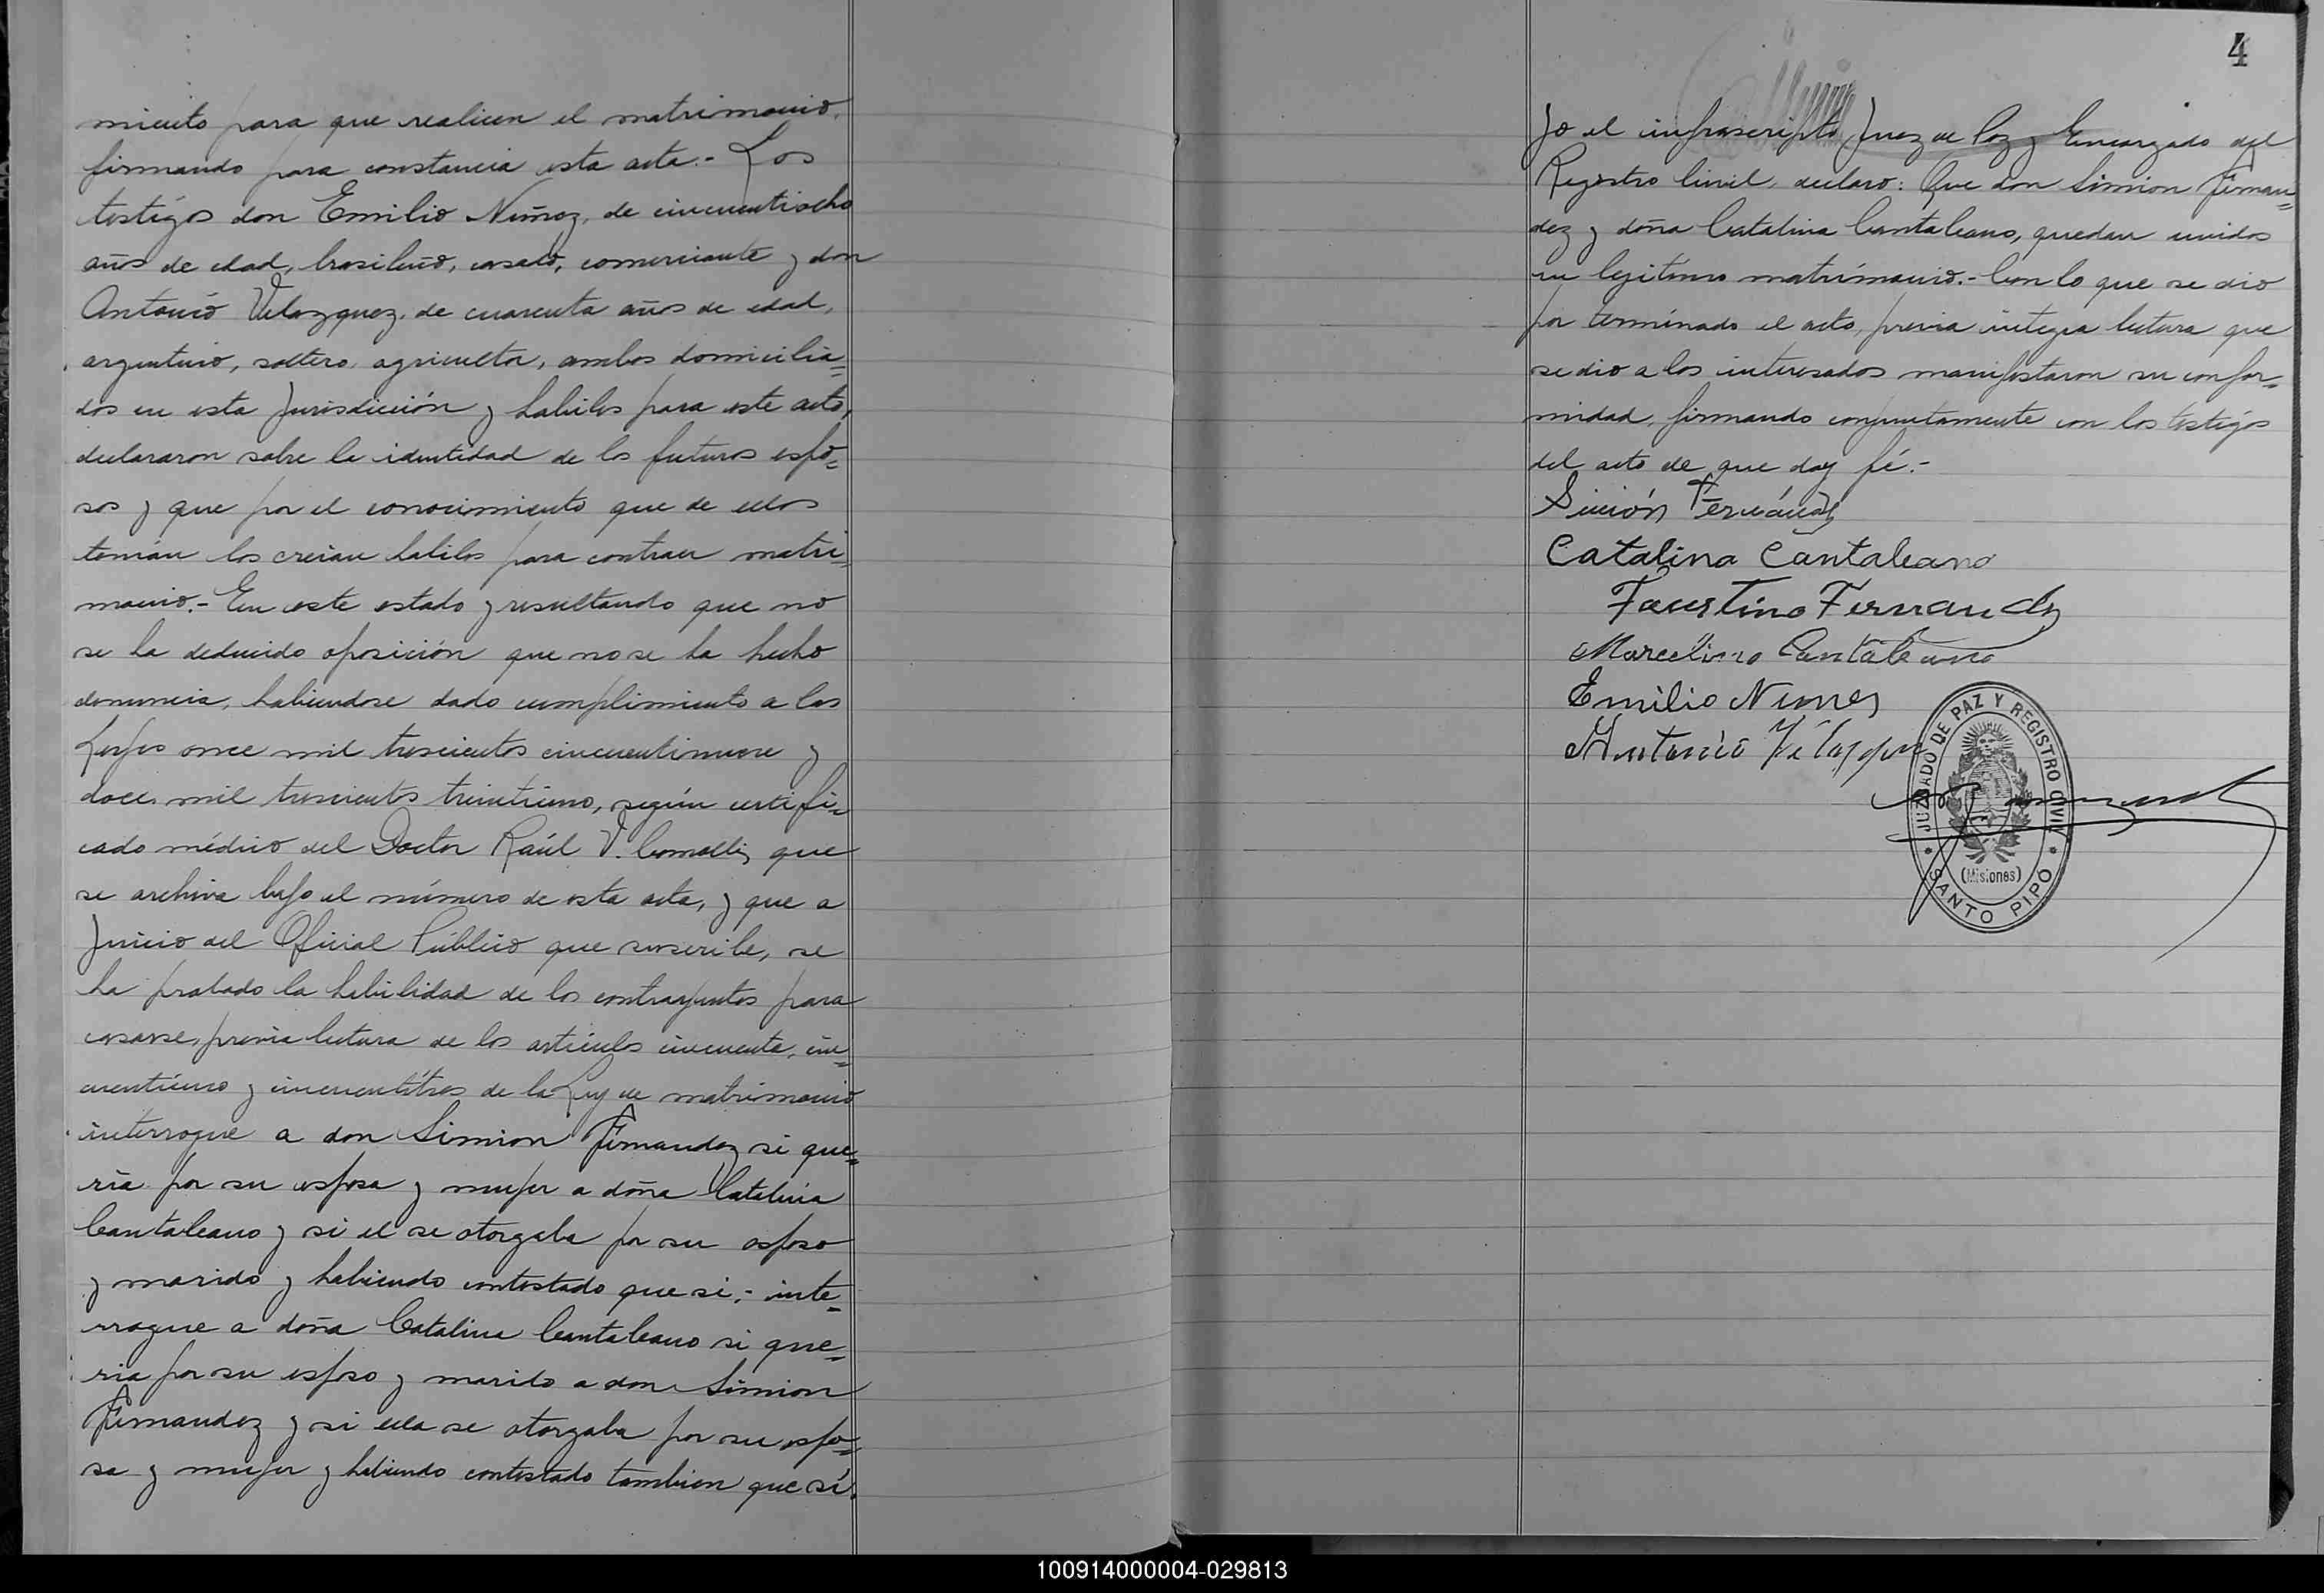 miento para que realicen el matrimonio,
firmando para constancia esta acta.- Los
testigos don Emilio Nuñez, de cincuentiocho
años de edad, brasileño, casado, comerciante y don
Antonio Velazquez, de cuarenta años de edad,
argentino, soltero, agricultor, ambos domicilia=
dos en esta Jurisdicción y habiles para este acto,
declararon sobre la identidad de los futuros espo=
sos y que por el conocimiento que de ellos
tenian los creian habiles para contraer matri=
monio.- En este estado y resultando que no
se ha deducido oposición que no se ha hecho
denuncia, habiendose dado cumplimiento a las
Leyes once mil trescientos cincuentinueve y
doce mil trescientos treintiuno, según certifi=
cado médico del Doctor Raúl V. Comolli, que
se archiva bajo el número de esta acta, y que a
Juicio del Oficial Público que suscribe, se
ha probado la habilidad de los contrayentes para
casarse, previa lectura de los artículos cincuenta, cin=
cuentiuno y cincuentitres de la Ley de matrimonio
interrogue a don Simion Fernandez si que=
ria por su esposa y mujer a doña Catalina
Cantaleano y si el se otorgaba por su esposo
y marido y habiendo contestado que si;- inte=
rrogue a doña Catalina Cantaleano si que=
ria por su esposo y marido a don Simion
Fernandez y si ella se otorgaba por su espo=
sa y mujer y habiendo contestado tambien que sí.
4
Yo el infrascripto Juez de Paz y Encargado del
Registro Civil, declaro: Que don Simion Fernan=
dez y doña Catalina Cantaleano, quedan unidos
en legitimo matrimonio.- Con lo que se dio
por terminado el acto, previa integra lectura que
se dio a los interesados manifestaron su confor=
midad, firmando conjuntamente con los testigos
del acto de que doy fé.-
Simión Fernández
Catalina Cantaleano
Faustino Fernandez
Marcelino Cantaleano
Emilio Nunes
Antonio
JUZGADO DE PAZ Y REGISTRO CIVIL
(Misiones)
SANTO PIPÓ
100914000004-029813